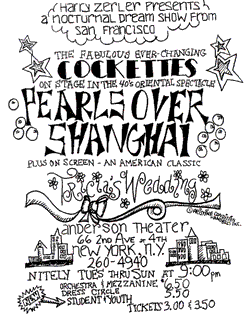 Harry Zerler Presents
a nocturnal dream show from
San Francisco
THE FABULOUS EVER-CHANGING
COCKETTES
ON STAGE IN THE 40'S ORIENTAL SPECTACLE
PEARLS OVER
SHANGHAI
PLUS ON SCREEN - AN AMERICAN CLASSIC
Tricia's Wedding
anderson Theater
66 2nd Ave at 4th
NEW YORK, N.Y.
260-4940
NITELY TUES THRU SUN AT 9:00 PM
ORCHESTRA & MEZZANINE $6.50
DRESS CIRCLE 5.50
STUDENT & YOUTH
TICKETS 3.00 & 3.50